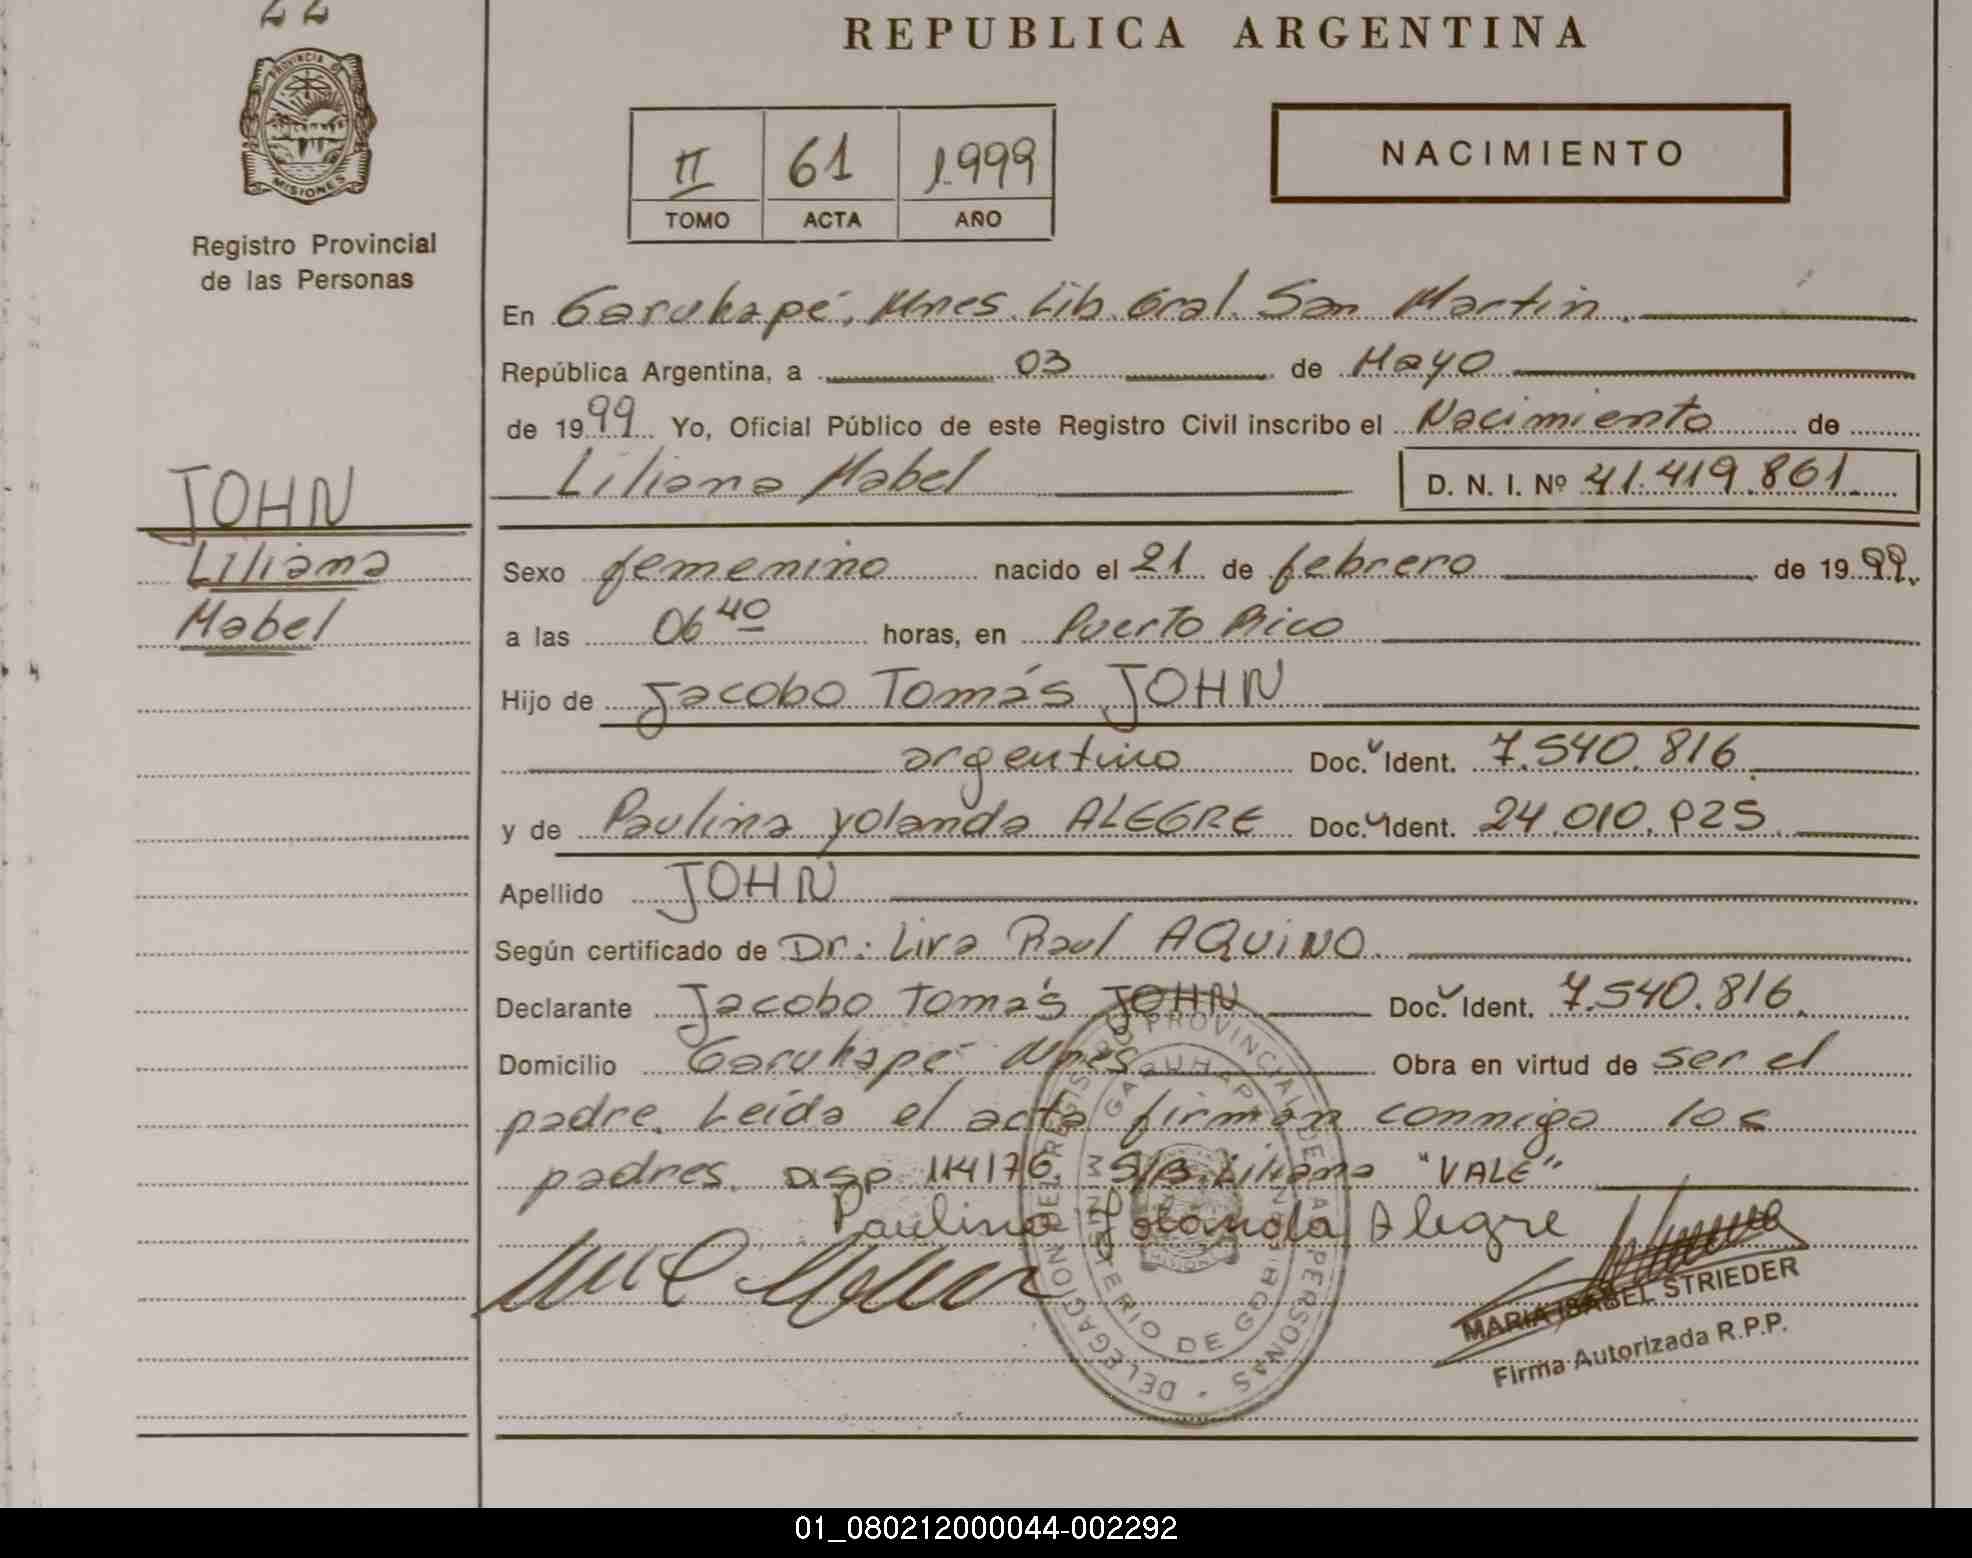 22
REPUBLICA ARGENTINA
PROVINCIA DE
MISIONES
Registro Provincial
de las Personas
II 61 1.999
TOMO ACTA AÑO
NACIMIENTO
En Garuhapé, Mnes. Lib. Gral. San Martin.
República Argentina, a 03 de Mayo
de 1999 Yo, Oficial Público de este Registro Civil inscribo el Nacimiento de
Liliana Mabel D. N. I. Nº 41.419.861
JOHN
Liliana
Mabel
Sexo femenino nacido el 21 de febrero de 1999.
a las 06 40 horas, en Puerto Rico
Hijo de Jacobo Tomás JOHN
argentino Doc. Ident. 7.540.816
y de Paulina Yolanda ALEGRE Doc. Ident. 24.010.825.
Apellido JOHN
Según certificado de Dr: Lira Raul AQUINO.
Declarante Jacobo Tomás JOHN Doc. Ident. 7.540.816.
Domicilio Garuhapé Mnes. Obra en virtud de ser el
padre. Leída el acta firman conmigo los
padres. Disp 114176. S/B. Liliana "VALE"
Paulina Yolanda Alegre
DELEGACION DEL REGISTRO PROVINCIAL DE LAS PERSONAS
GARUHAPE MNES
MINISTERIO DE GOBIERNO
MARIA ISABEL STRIEDER
Firma Autorizada R.P.P.
01_080212000044-002292